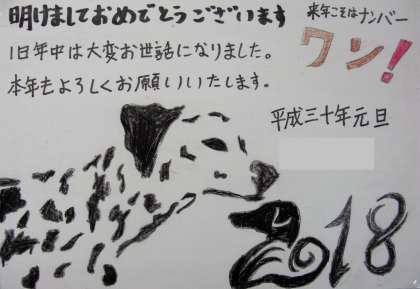 明けましておめでとうございます
1日年中は大変お世話になりました。
本年もよろしくお願いいたします。
来年こそはナンバー
ワン!
平成三十年元旦
2018